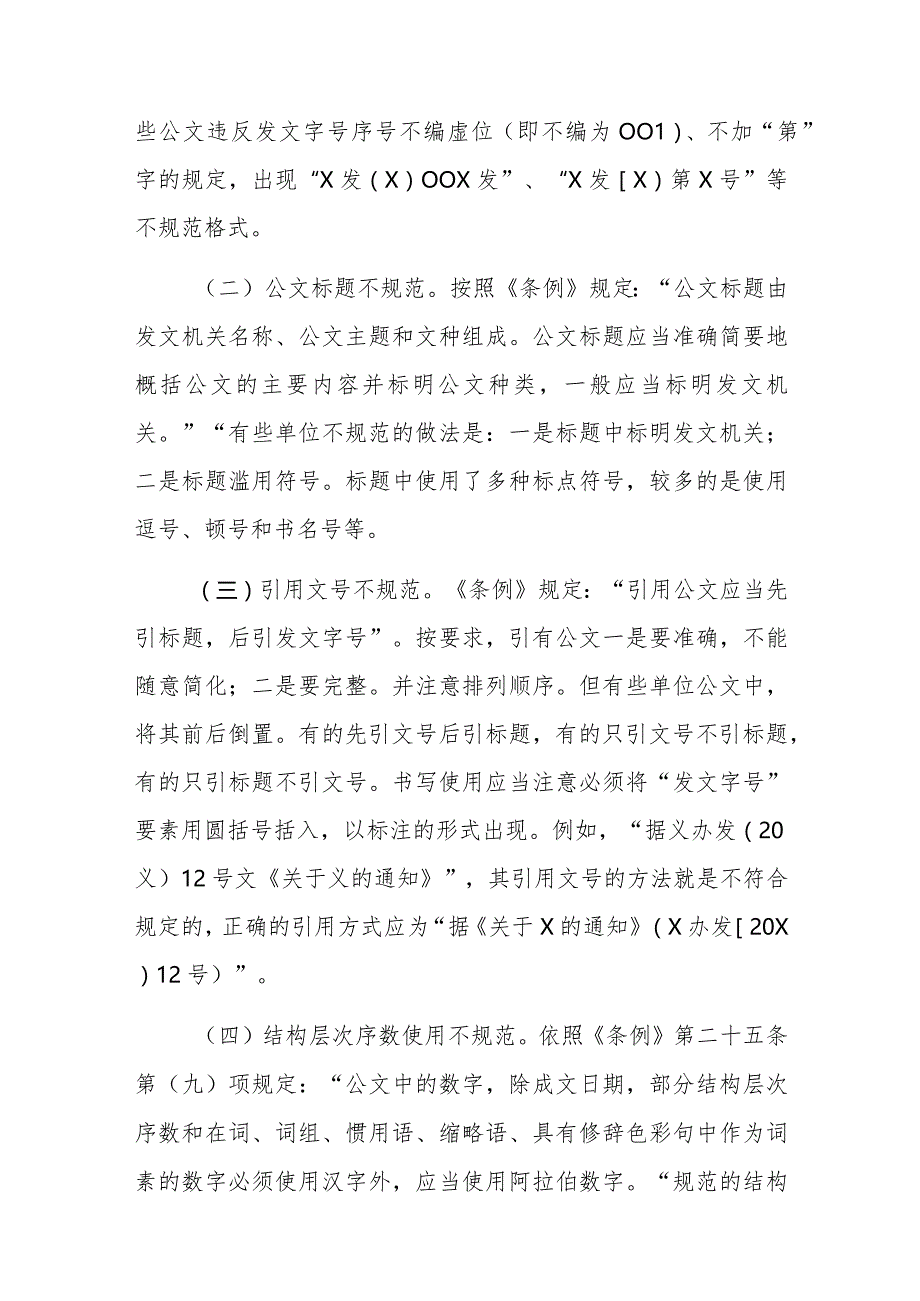 些公文违反发文字号序号不编虚位（即不编为OO1）、不加“第”
字的规定，出现“X发（X）OOX发”、“X发［X）第X号”等
不规范格式。
（二）公文标题不规范。按照《条例》规定：“公文标题由
发文机关名称、公文主题和文种组成。公文标题应当准确简要地
概括公文的主要内容并标明公文种类，一般应当标明发文机
关。”“有些单位不规范的做法是：一是标题中标明发文机关；
二是标题滥用符号。标题中使用了多种标点符号，较多的是使用
逗号、顿号和书名号等。
（三）引用文号不规范。《条例》规定：“引用公文应当先
引标题，后引发文字号”。按要求，引有公文一是要准确，不能
随意简化；二是要完整。并注意排列顺序。但有些单位公文中，
将其前后倒置。有的先引文号后引标题，有的只引文号不引标题，
有的只引标题不引文号。书写使用应当注意必须将“发文字号”
要素用圆括号括入，以标注的形式出现。例如，“据义办发（20
义）12号文《关于义的通知》”，其引用文号的方法就是不符合
规定的，正确的引用方式应为“据《关于X的通知》（X办发［20X
）12号）”。
（四）结构层次序数使用不规范。依照《条例》第二十五条
第（九）项规定：“公文中的数字，除成文日期，部分结构层次
序数和在词、词组、惯用语、缩略语、具有修辞色彩句中作为词
素的数字必须使用汉字外，应当使用阿拉伯数字。“规范的结构